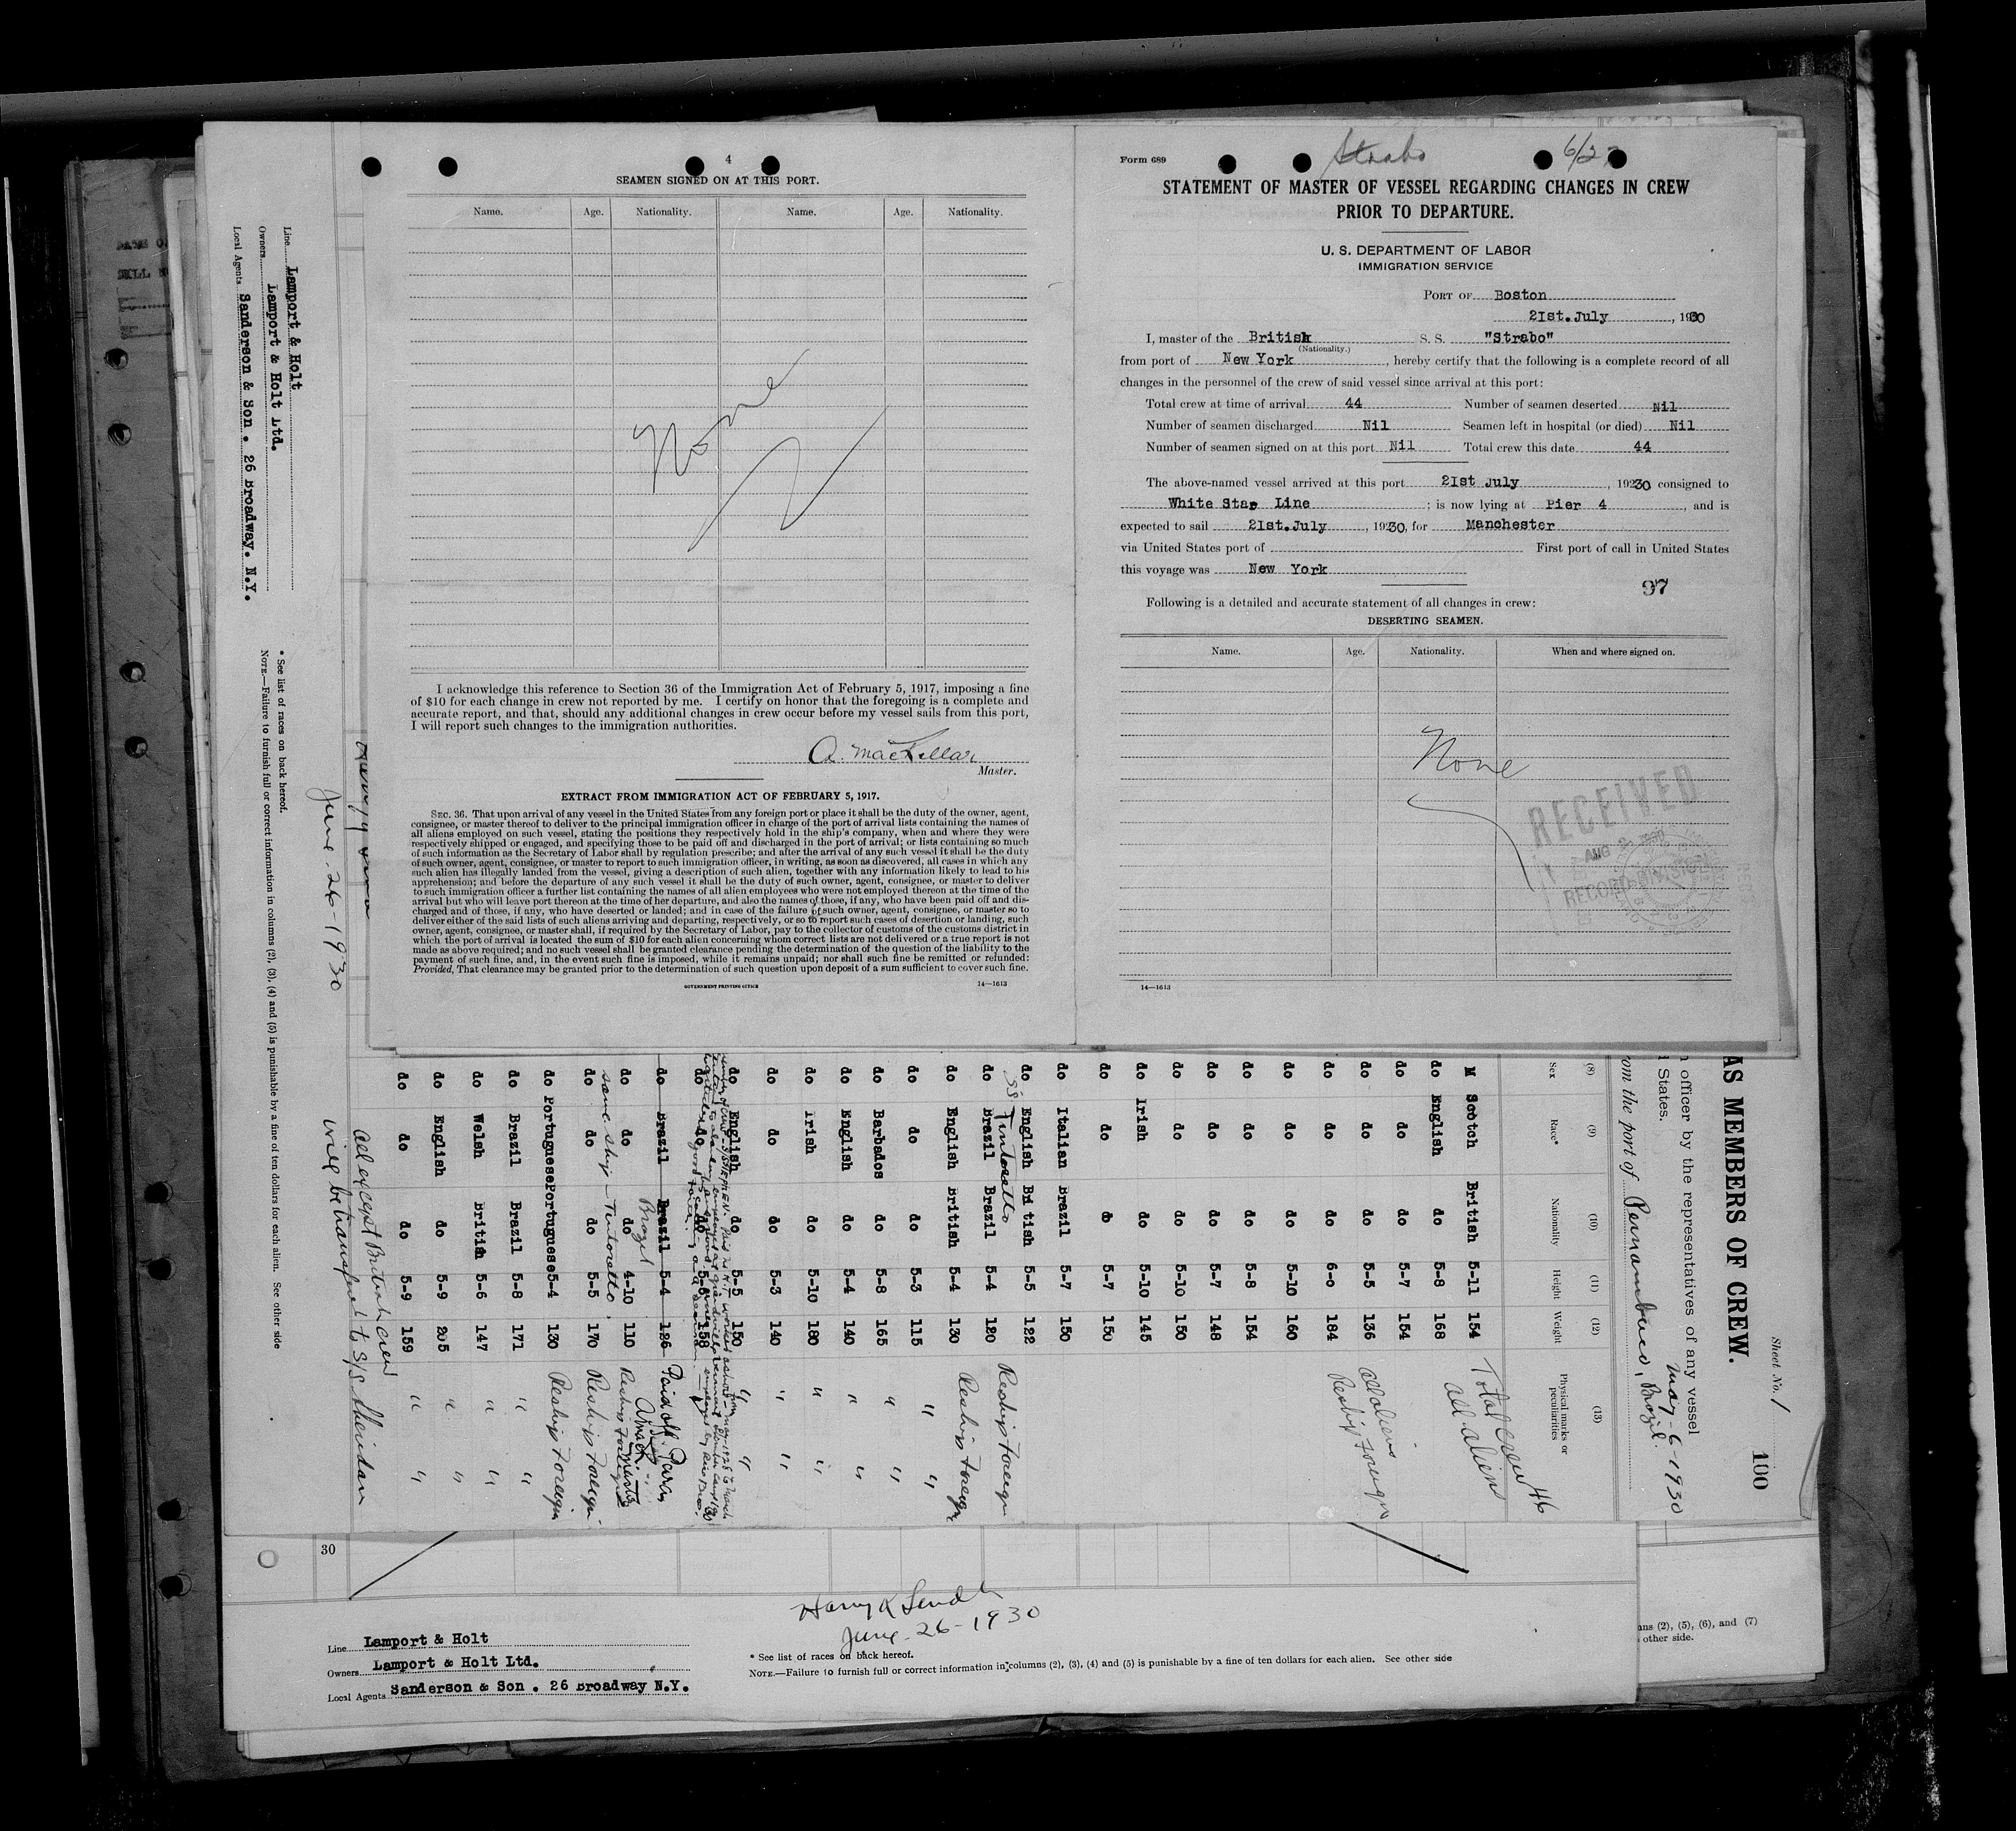 4
SEAMEN SIGNED ON AT THIS PORT.
Name. Age. Nationality. Name. Age. Nationality.
None
I acknowledge this reference to Section 36 of the Immigration Act of February 5, 1917, imposing a fine
of $10 for each change in crew not reported by me. I certify on honor that the foregoing is a complete and
accurate report, and that, should any additional changes in crew occur before my vessel sails from this port,
I will report such changes to the immigration authorities.
A. MacKellar
Master.
EXTRACT FROM IMMIGRATION ACT OF FEBRUARY 5, 1917.
SEC. 36. That upon arrival of any vessel in the United States from any foreign port or place it shall be the duty of the owner, agent,
consignee, or master thereof to deliver to the principal immigration officer in charge of the port of arrival lists containing the names of
all aliens employed on such vessel, stating the positions they respectively hold in the ship's company, when and where they were
respectively shipped or engaged, and specifying those to be paid off and discharged in the port of arrival; or lists containing so much
of such information as the Secretary of Labor shall by regulation prescribe; and after the arrival of any such vessel it shall be the duty
of such owner, agent, consignee, or master to report to such immigration officer, in writing, as soon as discovered, all cases in which any
such alien has illegally landed from the vessel, giving a description of such alien, together with any information likely to lead to his
apprehension; and before the departure of any such vessel it shall be the duty of such owner, agent, consignee, or master to deliver
to such immigration officer a further list containing the names of all alien employees who were not employed thereon at the time of the
arrival but who will leave port thereon at the time of her departure, and also the names of those, if any, who have been paid off and dis-
charged and of those, if any, who have deserted or landed; and in case of the failure of such owner, agent, consignee, or master so to
deliver either of the said lists of such aliens arriving and departing, respectively, or so to report such cases of desertion or landing, such
owner, agent, consignee, or master shall, if required by the Secretary of Labor, pay to the collector of customs of the customs district in
which the port of arrival is located the sum of $10 for each alien concerning whom correct lists are not delivered or a true report is not
made as above required; and no such vessel shall be granted clearance pending the determination of the question of the liability to the
payment of such fine, and, in the event such fine is imposed, while it remains unpaid; nor shall such fine be remitted or refunded:
Provided, That clearance may be granted prior to the determination of such question upon deposit of a sum sufficient to cover such fine.
GOVERNMENT PRINTING OFFICE 14—1613
Form 689
Strabo
STATEMENT OF MASTER OF VESSEL REGARDING CHANGES IN CREW
PRIOR TO DEPARTURE.
U. S. DEPARTMENT OF LABOR
IMMIGRATION SERVICE
PORT OF Boston
21st. July, 1930
I, master of the British S. S. "Strabo"
(Nationality.)
from port of New York, hereby certify that the following is a complete record of all
changes in the personnel of the crew of said vessel since arrival at this port:
Total crew at time of arrival 44 Number of seamen deserted Nil
Number of seamen discharged Nil Seamen left in hospital (or died) Nil
Number of seamen signed on at this port Nil Total crew this date 44
The above-named vessel arrived at this port 21st July, 1930 consigned to
White Star Line; is now lying at Pier 4, and is
expected to sail 21st. July, 1930, for Manchester
via United States port of First port of call in United States
this voyage was New York
97
Following is a detailed and accurate statement of all changes in crew:
DESERTING SEAMEN.
Name. Age. Nationality. When and where signed on.
None
RECEIVED
AUG 2
RECORD DIVISION
14—1613
Line Lamport & Holt
Owners Lamport & Holt Ltd.
Local Agents Sanderson & Son . 26 Broadway. N.Y.
* See list of races on back hereof.
NOTE.—Failure to furnish full or correct information in columns (2), (3), (4) and (5) is punishable by a fine of ten dollars for each alien. See other side
June-26-1930
all except British crew
will be transferred to S/S Sheridan
Sheet No. 1
100
AS MEMBERS OF CREW.
officer by the representatives of any vessel
States.
May-6-1930
om the port of Pernambuco, Brazil.
(8) (9) (10) (11) (12) (13)
Sex Race* Nationality Height Weight Physical marks or peculiarities
Total crew 46
all aliens
M Scotch British 5-11 154
do English do 5-8 168
do do do 5-7 154
do do do 5-5 136 all aliens
do do do 6-0 184 Reship Foreign
do do do 5-10 160
do do do 5-8 154
do do do 5-7 148
do do do 5-10 150
do Irish do 5-10 145
do do do 5-7 150
do Italian Brazil 5-7 150
do English British 5-5 122
SS Tintoretto
do Brazil Brazil 5-4 120 Reship Foreign
do English British 5-4 130 Reship Foreign
do do do 5-3 115 " "
do Barbados do 5-8 165 " "
do English do 5-4 140 " "
do Irish do 5-10 180 " "
do do do 5-3 140 " "
do English do 5-5 150 " "
do do do 5-6 158
do Brazil Brazil 5-4 126 Paid off. Para
Brazil
do do do 4-10 110 Reship Foreign
same ship - Tintoretto
do do do 5-5 170 Reship Foreign
do Portuguese Portuguese 5-4 130 Reship Foreign
do Brazil Brazil 5-8 171 " "
do Welsh British 5-6 147 " "
do English do 5-9 205 " "
do do do 5-9 159 " "
30
Line Lamport & Holt
Owners Lamport & Holt Ltd.
Local Agents Sanderson & Son . 26 Broadway N.Y.
June-26-1930
* See list of races on back hereof.
NOTE.—Failure to furnish full or correct information in columns (2), (3), (4) and (5) is punishable by a fine of ten dollars for each alien. See other side
ans (2), (5), (6), and (7)
other side.